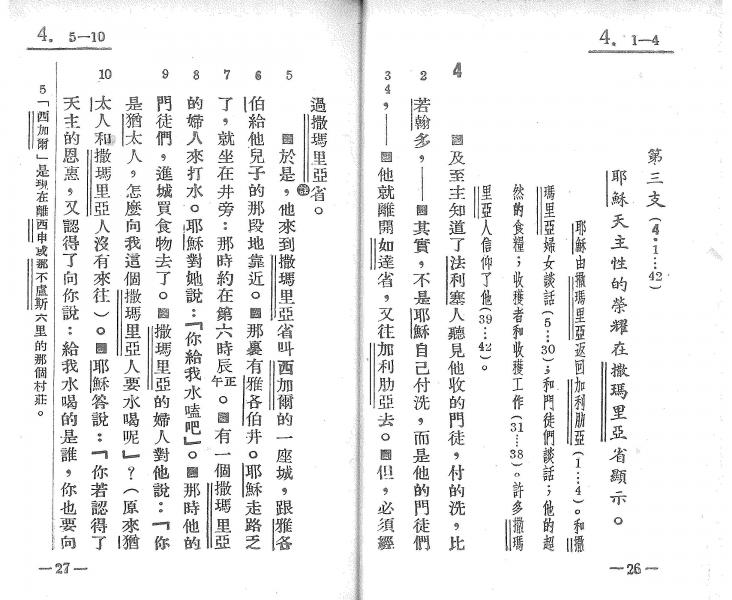 4. 1—4
第三支(4·1…42)
耶穌天主性的榮耀在撒瑪里亞省顯示。
耶穌由撒瑪里亞返回加利肋亞(1…4)。和撒
瑪里亞婦女談話(5…30);和門徒們談話;他的超
然的食糧;收穫者和收穫工作(31…38)。許多撒瑪
里亞人信仰了他(39…42)。
4 及至主知道了法利塞人聽見他收的門徒,付的洗,比
2 若翰多,——其實,不是耶穌自己付洗,而是他的門徒們
3 4 ,——他就離開如達省,又往加利肋亞去。但,必須經
—26—
4. 5—10
過撒瑪里亞省。
5 於是,他來到撒瑪里亞省叫西加爾的一座城,跟雅各
6 伯給他兒子的那段地靠近。那裏有雅各伯井。耶穌走路乏
7 了,就坐在井旁:那時約在第六時辰正午。有一個撒瑪里亞
8 的婦人來打水。耶穌對她說:「你給我水嗑吧」。那時他的
9 門徒們,進城買食物去了。撒瑪里亞的婦人對他說:「你
是猶太人,怎麼向我這個撒瑪里亞人要水喝呢」?(原來猶
10 太人和撒瑪里亞人沒有來往)。耶穌答說:「你若認得了
天主的恩惠,又認得了向你說:給我水喝的是誰,你也要向
5「西加爾」是現在離西申或那不盧斯六里的那個村莊。
—27—